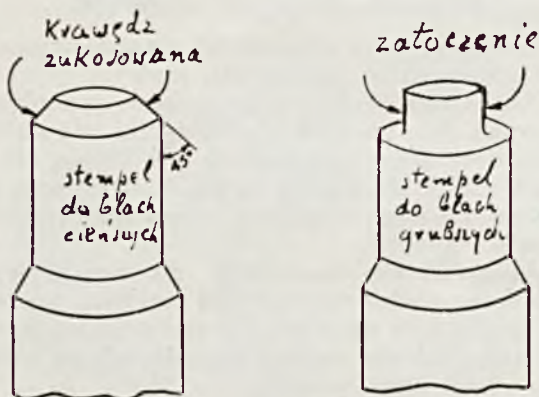 Krawędz
zukosowana
45°
stempel
do blach
cieńszych
zatoczenie
stempel
do blach
grubszych